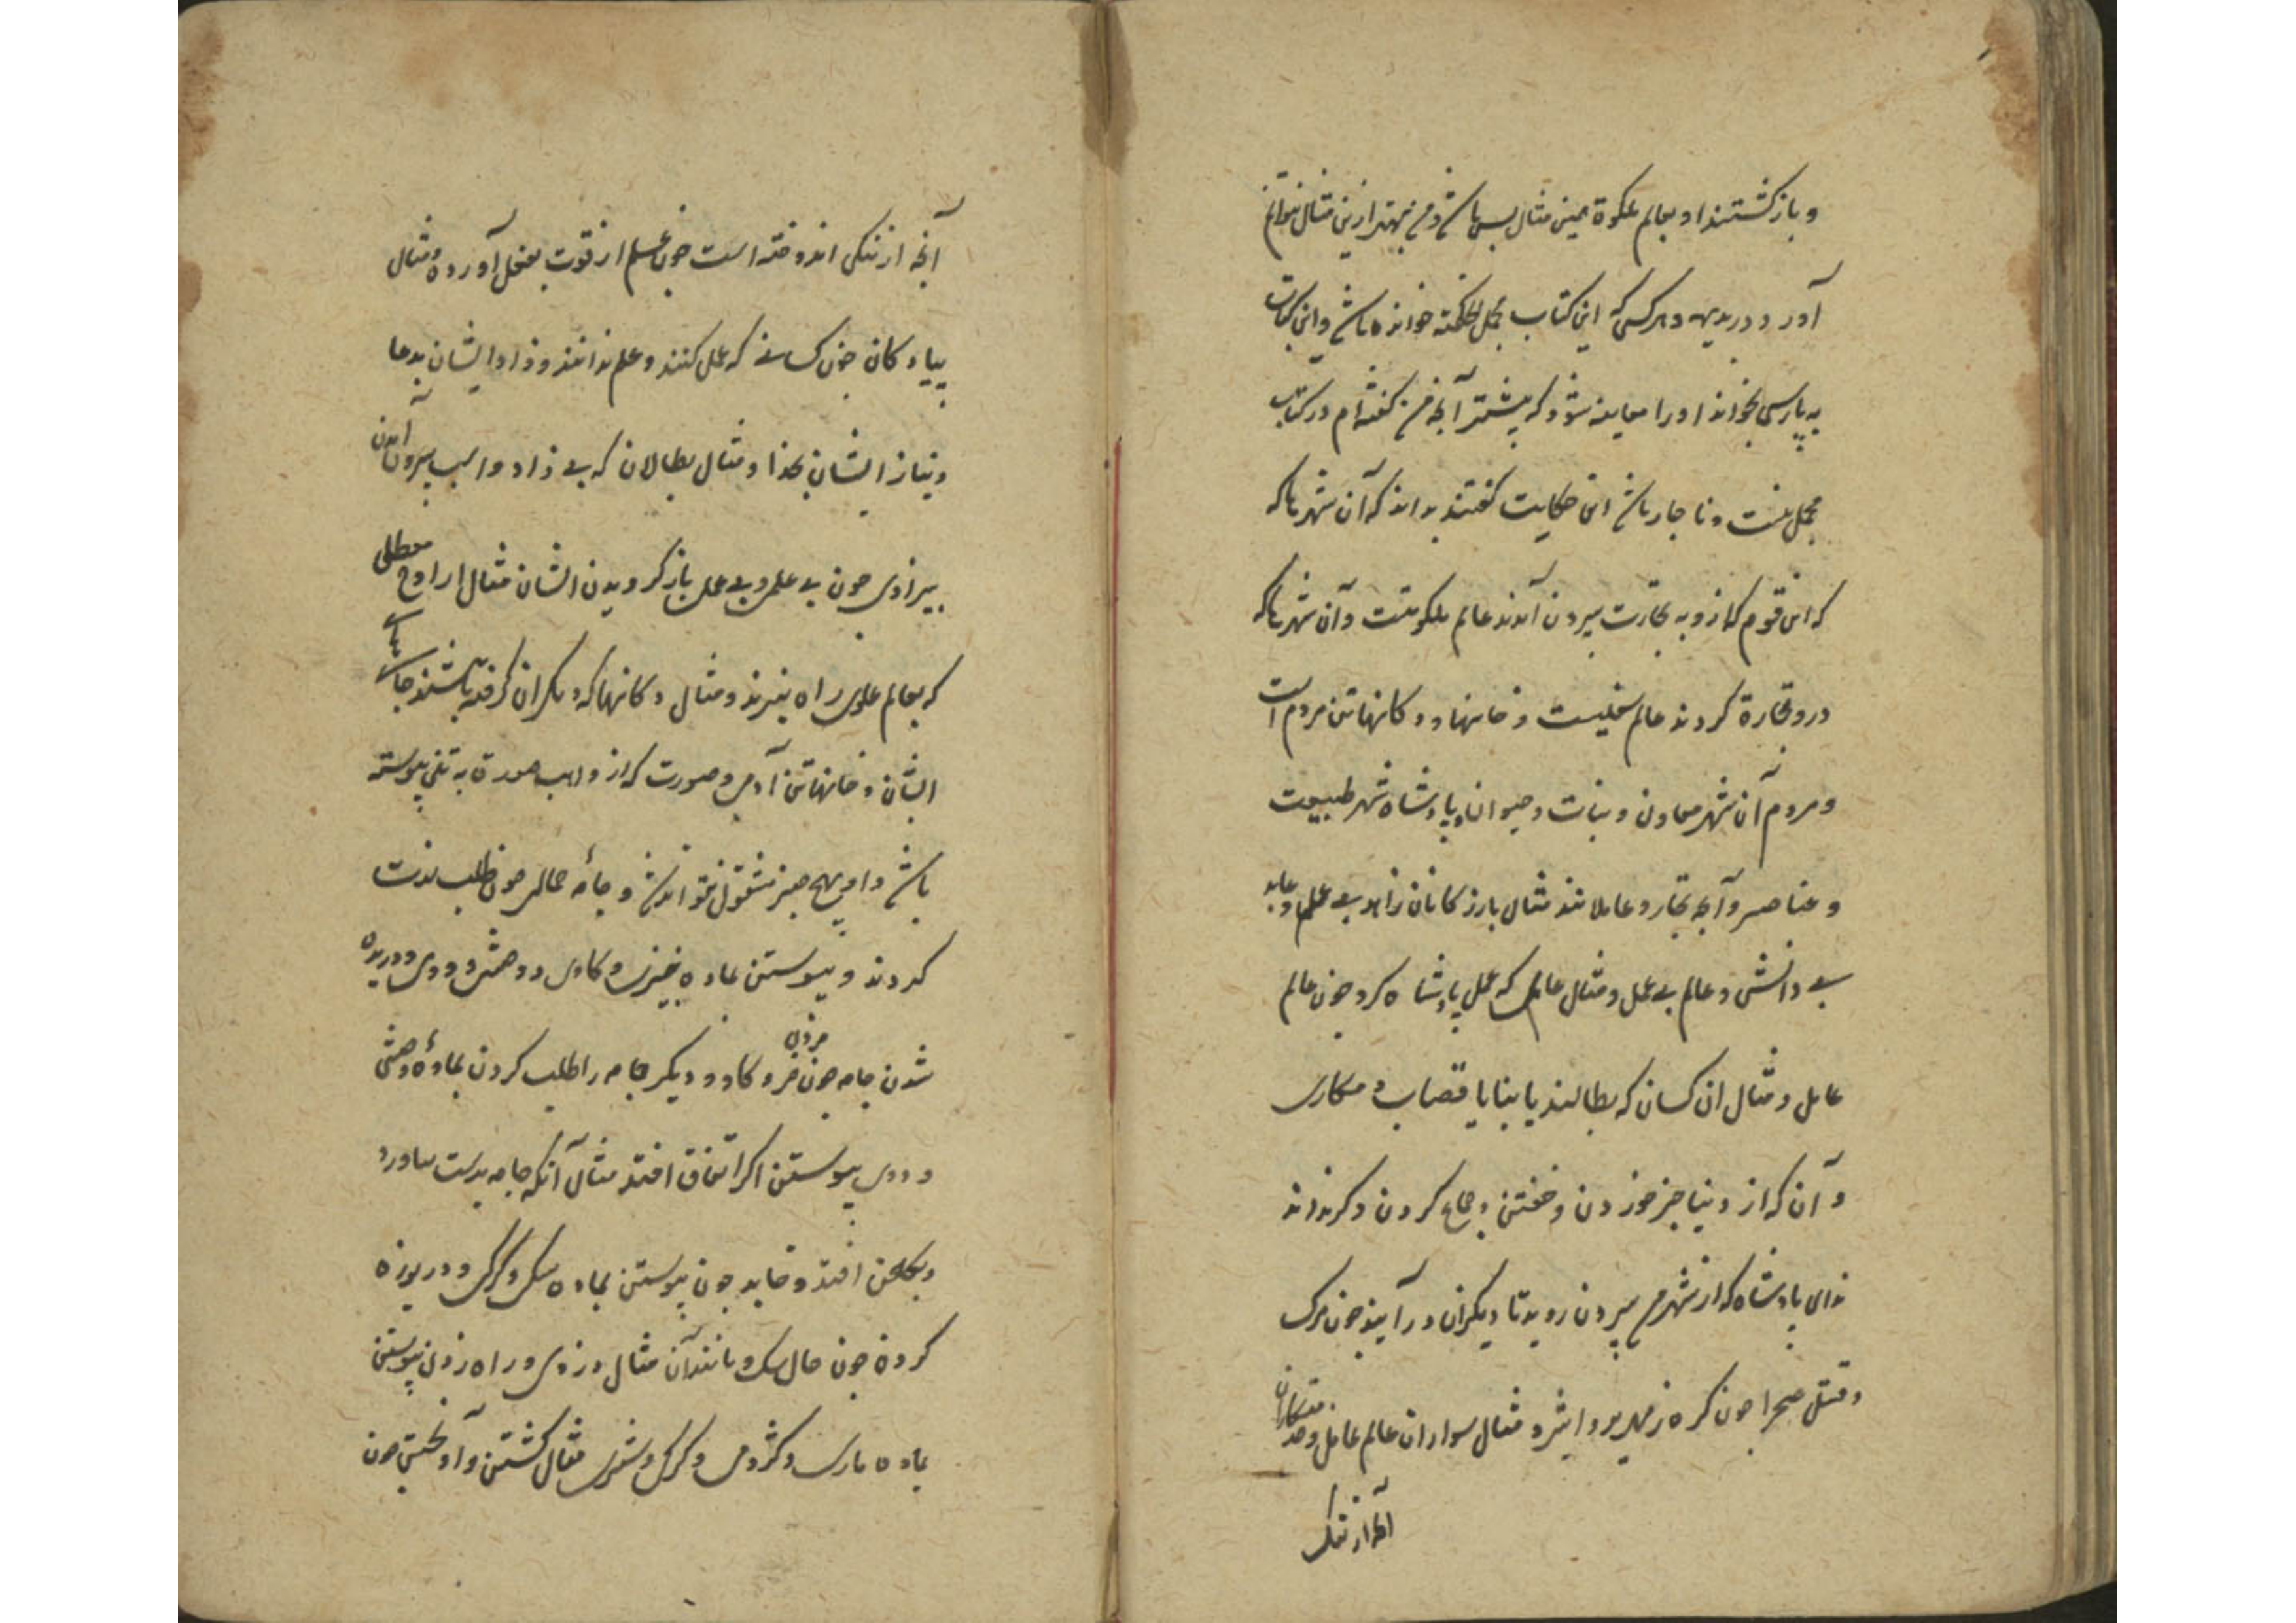 و بازگشتند او بعالم ملکوة همین مثال بس باشد و من بهتر ازین مثال نتوانم
آورد و در بدیهه و هر کسی که این کتاب مجمل الحکمة خوانده باشد و این کتاب
به پارسی بخواند او را معاینه شود که بیشتر آنچه من گفته ام در کتاب
مجمل نیست و ناچار باشد این حکایت گفتند بداند که آن شهر باکه
که این قوم که ازو به تجارت بیرون آمدند عالم ملکوتست و آن شهر باکه
درو تجارة کردند عالم سفلیست و خانهها و دکانها تن مردم است
و مردم آن شهر معادن و نبات و حیوان و پادشاه شهر طبیعت
و عناصر و آنچه تجار و عاملانند مثال بازرکانان زاهد بی علم و عابد
بی دانش و عالم بی عمل و مثال عامل که عمل پادشاه کرد چون عالم
عامل و مثال ان کسان که بطالند یا بنا یا قصاب و مکاری
و آن که از دنیا جز خوردن و خفتن و جماع کردن دکر نداند
ندای پادشاه که از شهر من بیرون روید تا دیگران در آیند چون مرک
و قتل صحرا چون کره زمهریر و اثیر و مثال سواران عالم عامل و خدمتکاران
آنچه از نیک
آنچه از نیکی اندوخته است چون علم از قوت بفعل آورده و مثال
پیادکان چون کسانی که عمل کنند و علم ندانند و زاد ایشان بدعا
و نیاز ایشان بخدا و مثال بطالان که بی زاد و اسب بیرون آمدن
بیزادی چون بی علمی و بی عملی بازگردیدن ایشان مثال ارواح معطلی
که بعالم علوی راه نبرند و مثال دکانها که دیگران گرفته باشند جای
ایشان و خانها تن آدمی و صورت که از واهب صورة به تنی پیوسته
باشد و او بهیچ چیز مشغول نتواند شد و جامه حمالی چون طلب لذت
کردند و پیوستن بماده خری و کاوی و وحشی و ددی و دریده
شدن جامه چون مردن خر و کاو و دیگر جامه را طلب کردن بمادهٔ وحشی
و ددی پیوستن اکر اتفاق افتد مثال آنکه جامه بدست نیاورد
و بکلخن افتد و خاید چون پیوستن بماده سکی و گرگی و دریوزه
کرده چون حال سک و مانند آن مثال دزدی و راه زدن پیوستن
بماده ماری و کژدمی و گرگ و شیری مثال کشتن و آویختن چون